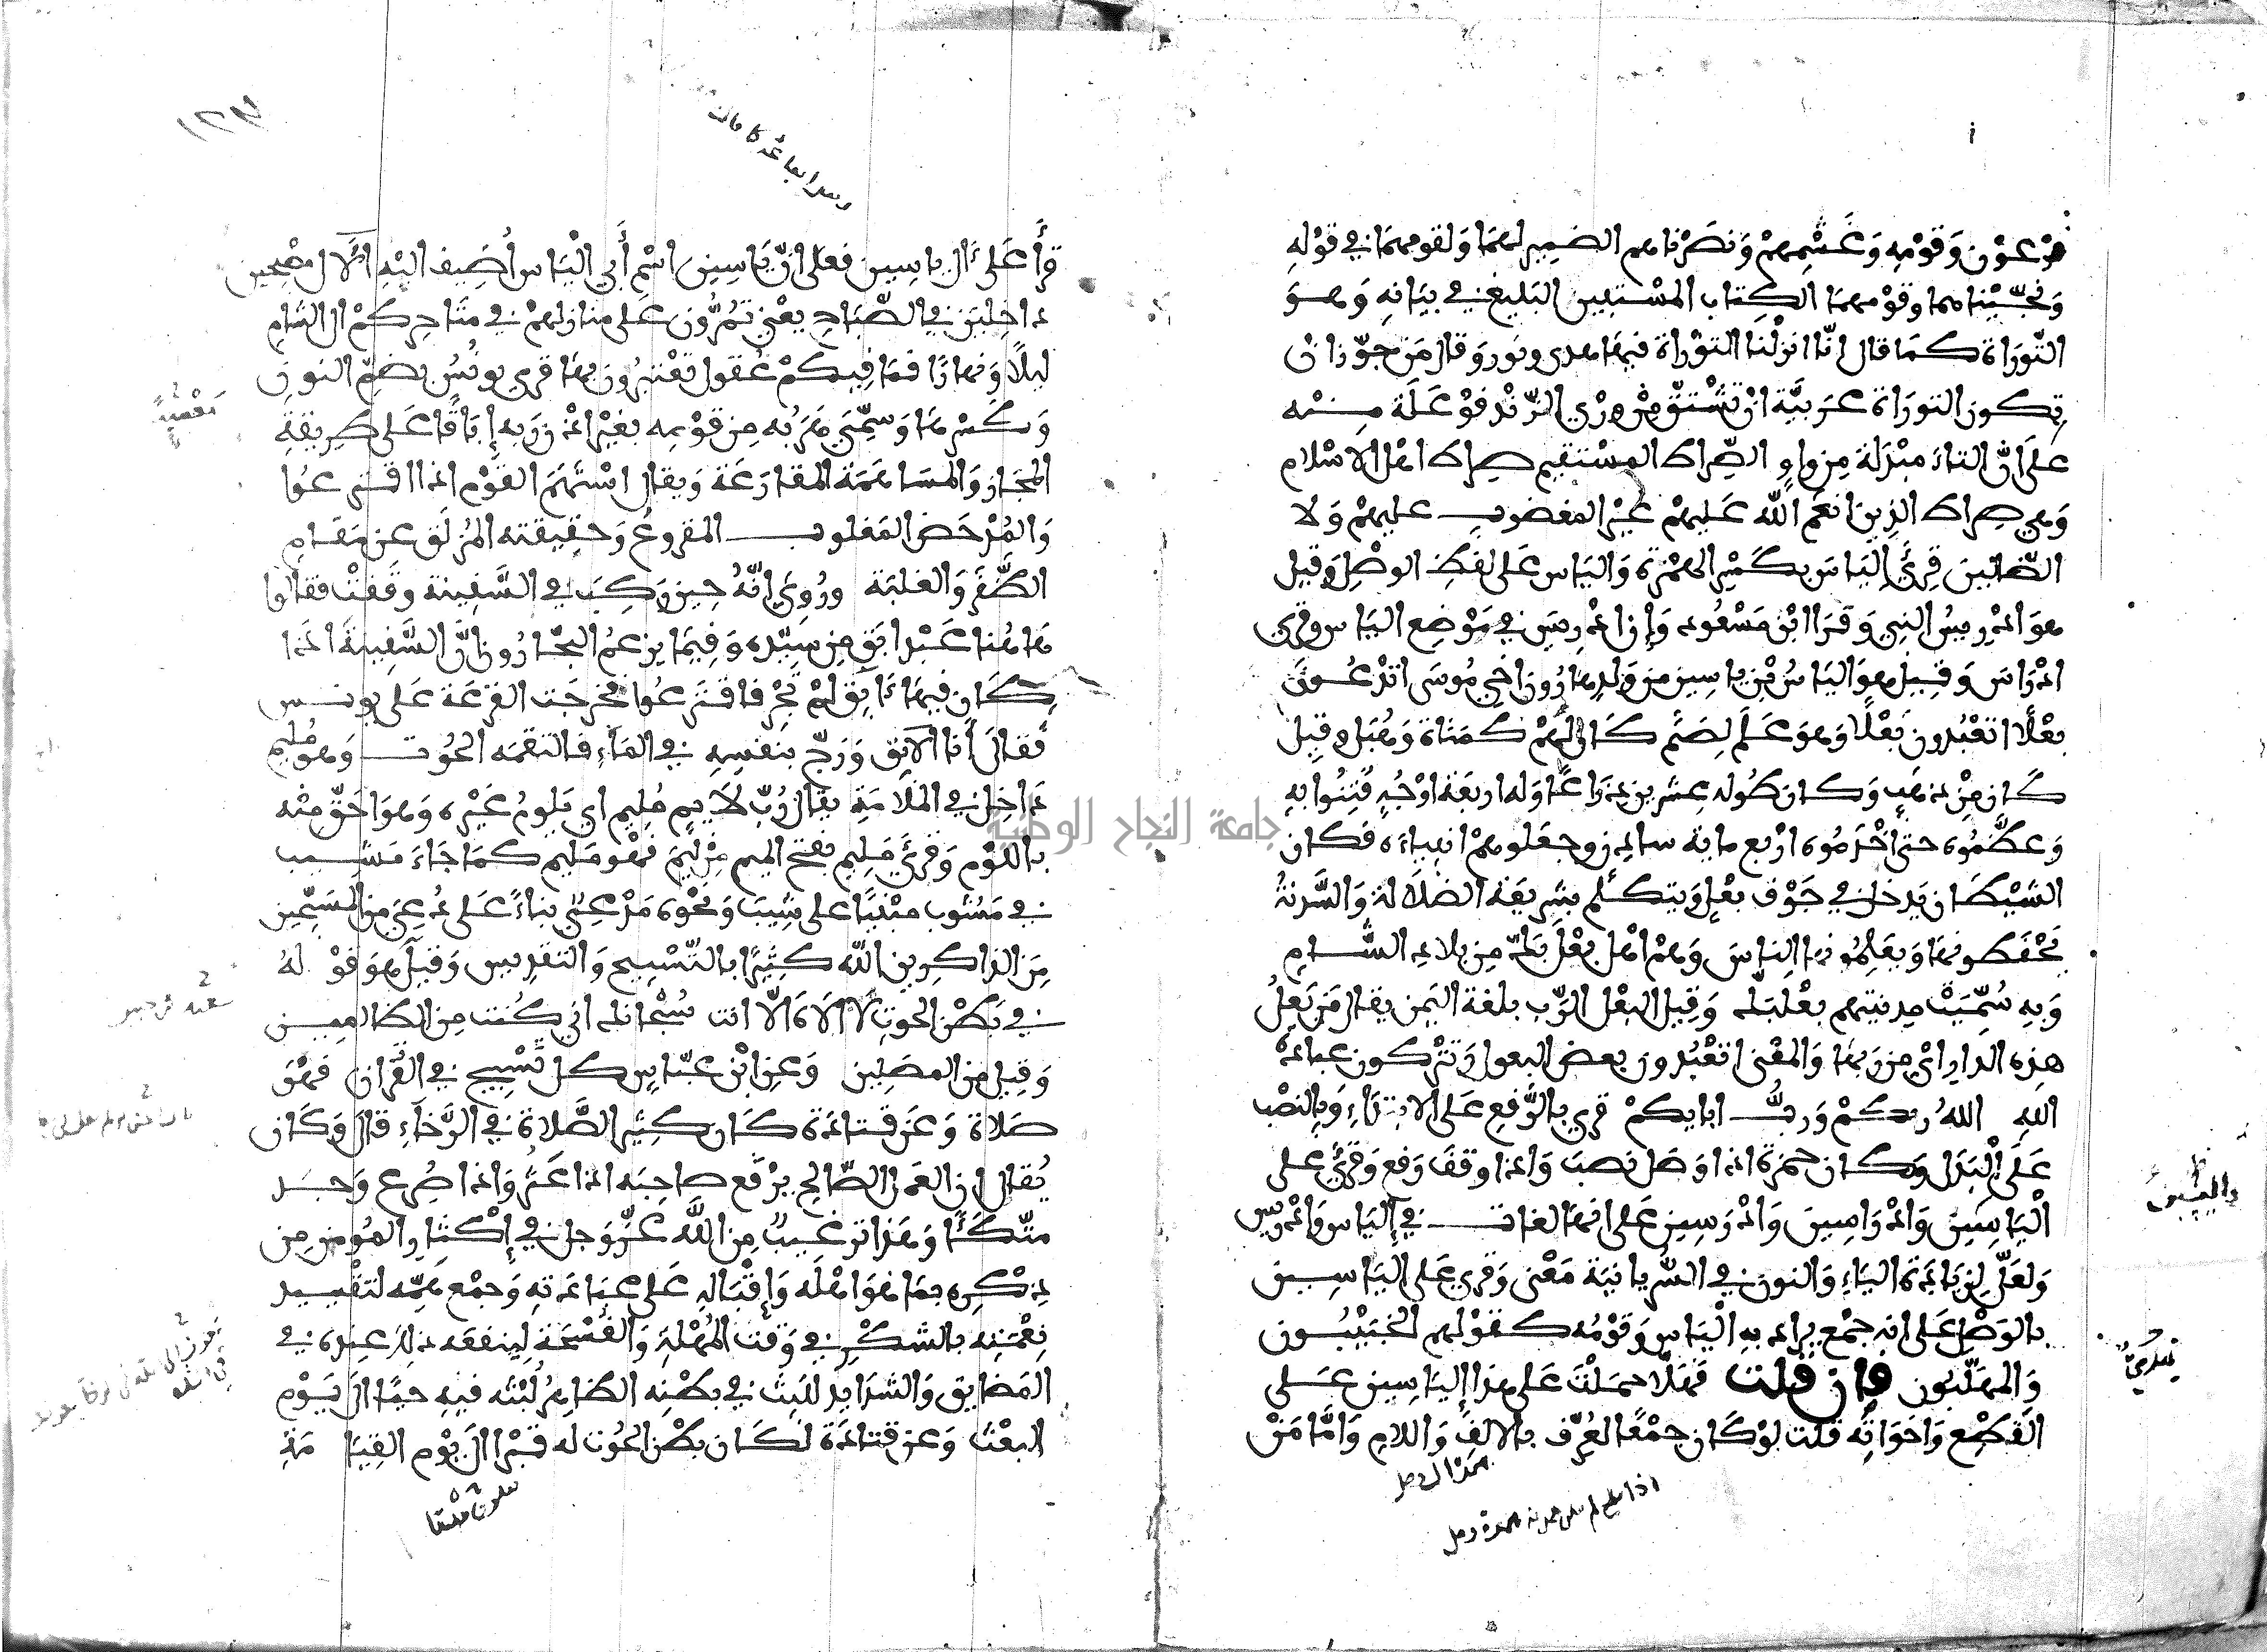 فرعون وقومه وغشمهم ونصرناهم الضمير لهما ولقومهما في قوله
ونجيناهما وقومهما الكتاب المستبين البليغ في بيانه وهو
التوراة كما قال انا انزلنا التوراة فيها هدى ونور وقال من جوز ان
تكون التوراة عربية ان تشتق من وري الزند فوعلة منه
على ان التاء مبدلة من واو الصراط المستقيم صراط اهل الاسلام
وهي صراط الذين انعم الله عليهم غير المغضوب عليهم ولا
الضالين قرئ إلياس بكسر الهمزة والياس على لفظ الوصل وقيل
هو ادريس النبي وقرا ابن مسعود وإن ادريس في موضع الياس وقرئ
ادراس وقيل هو الياس بن ياسين من ولد هارون اخي موسى اتدعون
بعلا اتعبدون بعلا وهو علم لصنم كان لهم كمناة وهبل وقيل
كان من ذهب وكان طوله عشرين ذراعا وله اربعة اوجه فتنوا به
وعظموه حتى اخدموه اربع ماية سادن وجعلوهم انبياءه فكان
الشيطان يدخل في جوف بعل ويتكلم بشريعة الضلالة والسدنة
يحفظونها ويعلمونها الناس وهم اهل بعلبك من بلاد الشام
وبه سميت مدينتهم بعلبك وقيل البعل الرب بلغة اليمن يقال من بعل
هذه الدار اي من ربها والمعنى اتعبدون بعض البعول وتتركون عبادة
الله الله ربكم ورب ابايكم قرئ بالرفع على الابتداء وبالنصب
على البدل وكان حمزة اذا وصل نصب واذا وقف رفع وقرئ على
الياسين وادراسين وادرسين على انها لغات في إلياس وادريس
ولعل لزيادة الياء والنون في السريانية معنى وقرئ على الياسين
بالوصل على انه جمع يراد به الياس وقومه كقولهم الخبيبون
والمهلبون فان قلت فهلا حملت على هذا إلياسين على
القطع واخواته قلت لو كان جمعا لعرف بالالف واللام واما من
قرأ على ءال ياسين فعلى ان ياسين اسم أبي الياس أضيف اليه الآل مصبحين
داخلين في الصباح يعني تمرون على منازلهم في متاجركم الى الشام
ليلا ونهارا فما فيكم عقول تعتبرون بها قرئ يونس بضم النون
وكسرها وسمي هربه من قومه بغير اذن ربه إباقا على طريقة
المجاز والمساهمة المقارعة ويقال استهم القوم اذا اقترعوا
والمدحض المغلوب المقروع وحقيقته المزلق عن مقام
الظفر والغلبة وروي انه حين ركب في السفينة وقفت فقالوا
هاهنا عبد ابق من سيده وفيما يزعم البحارون ان السفينة اذا
كان فيها ءابق لم تجر فاقترعوا فخرجت القرعة على يونس
فقال أنا الآبق وزج بنفسه في الماء فالتقمه الحوت وهو مليم
داخل في الملامة يقال رب لايم مليم اي يلوم غيره وهو احق منه
باللوم وقرئ مليم بفتح الميم من ليم فهو مليم كما جاء مشيب
في مشوب مبنيا على شيب ونحوه مدعي بناء على دعي من المسبحين
من الذاكرين الله كثيرا بالتسبيح والتقديس وقيل هو قوله
في بطن الحوت لا الاه الا انت سبحانك اني كنت من الظالمين
وقيل من المصلين وعن ابن عباس كل تسبيح في القرآن فهو
صلاة وعن قتادة كان كثير الصلاة في الرخاء قال وكان
يقال ان العمل الصالح يرفع صاحبه اذا عثر واذا صرع وجد
متكئا وهذا ترغيب من الله عز وجل في إكثار المومن من
ذكره بما هو اهله وإقباله على عبادته وجمع همه لتقييد
نعمته بالشكر في وقت المهلة والفسحة لينفعه ذلك عنده في
المضايق والشدايد للبث في بطنه الظاهر لبثه فيه حيا الى يوم
البعث وعن قتادة لكان بطن الحوت له قبرا الى يوم القيامة